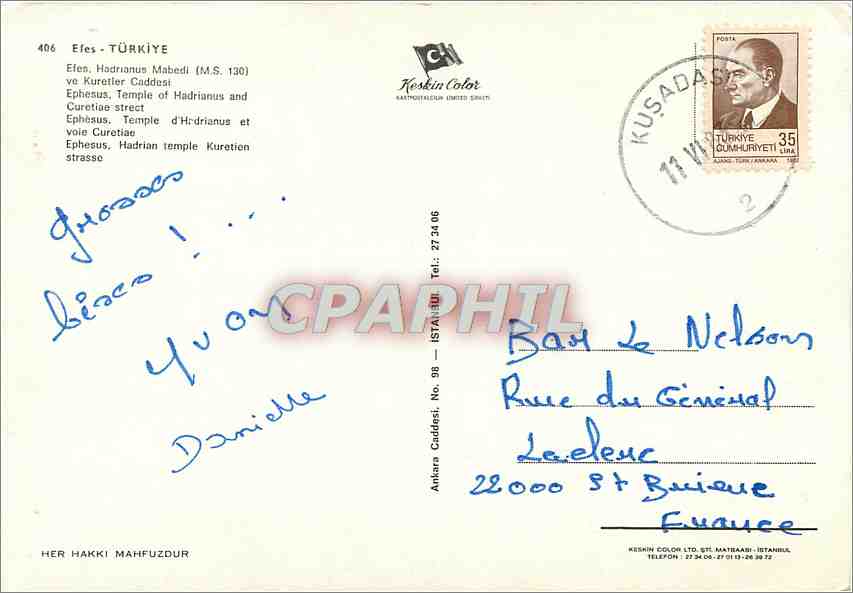 406 Efes - TÜRKİYE
Efes, Hadrıanus Mabedi (M.S. 130)
ve Kuretler Caddesi
Ephesus, Temple of Hadrianus and
Curetiae strect
Ephésus, Temple d'Hadrianus et
voie Curetiae
Ephesus, Hadrian temple Kuretien
strasse
Keskin Color
KARTPOSTALCILIK LİMİTED ŞİRKETİ
POSTA
TÜRKİYE
CUMHURİYETİ 35
LİRA
AJANS-TÜRK/ANKARA
KUŞADASI
11 VI
2
grosses
bises ! ...
Yvon
Danielle
Ankara Caddesi, No. 98 — İSTANBUL Tel.: 27 34 06
CPAPHIL
Bar Le Nelson
Rue du Général
Leclerc
22000 St Brieuc
France
HER HAKKI MAHFUZDUR
KESKİN COLOR LTD. ŞTİ. MATBAASI - İSTANBUL
TELEFON : 27 34 06 - 27 01 13 - 26 39 72